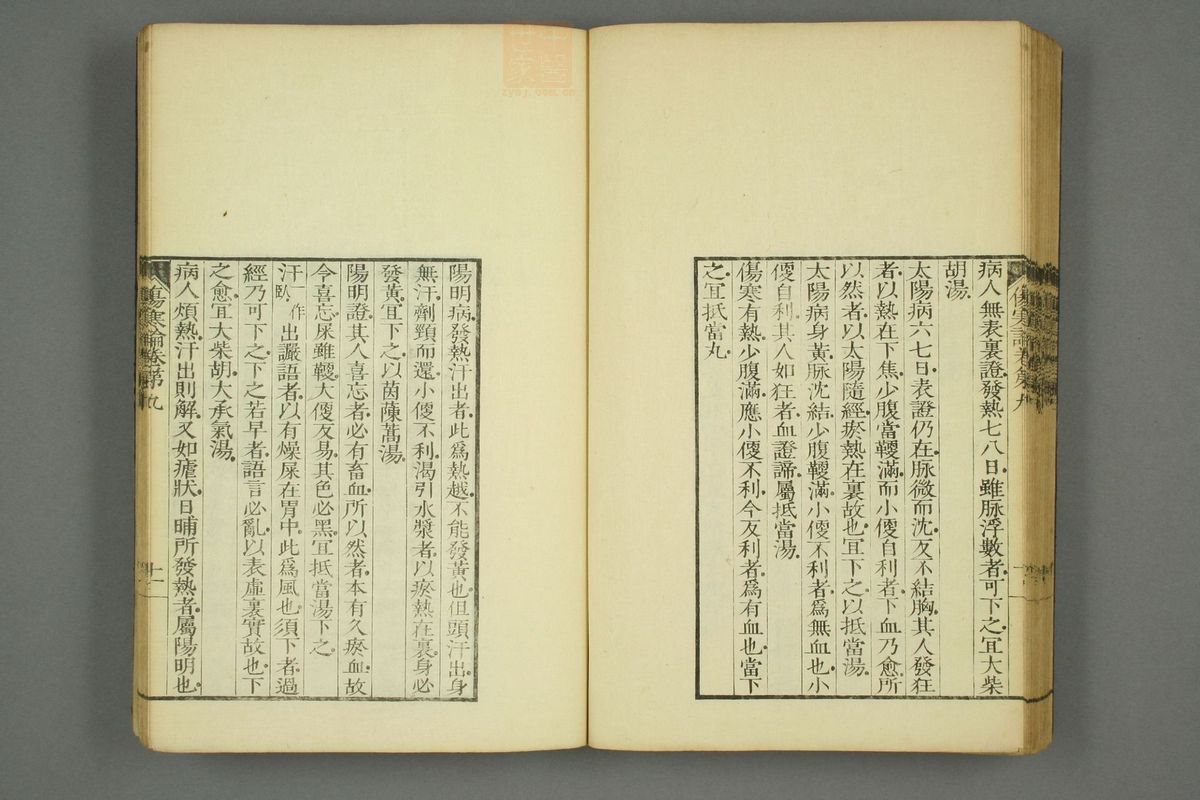 病人無表裏證發熱七八日雖脉浮數者可下之冝大柴
胡湯
太陽病六七日表證仍在脉微而沈反不結胸其人發狂
者以熱在下焦少腹當鞕滿而小便自利者下血乃愈所
以然者以太陽隨經瘀熱在裏故也冝下之以抵當湯
太陽病身黃脉沈結少腹鞕滿小便不利者爲無血也小
便自利其人如狂者血證諦屬抵當湯
傷寒有熱少腹滿應小便不利今反利者爲有血也當下
之冝抵當丸
陽明病發熱汗出者此爲熱越不能發黃也但頭汗出身
無汗劑頸而還小便不利渴引水漿者以瘀熱在裏身必
發黃冝下之以茵蔯蒿湯
陽明證其人喜忘者必有畜血所以然者本有久瘀血故
令喜忘屎雖鞕大便反易其色必黑冝抵當湯下之
汗一作臥出讝語者以有燥屎在胃中此爲風也須下者過
經乃可下之下之若早者語言必亂以表虛裏實故也下
之愈冝大柴胡大承氣湯
病人煩熱汗出則解又如瘧狀日晡所發熱者屬陽明也
傷寒論卷第九
十一
中醫世家
zysj.com.cn